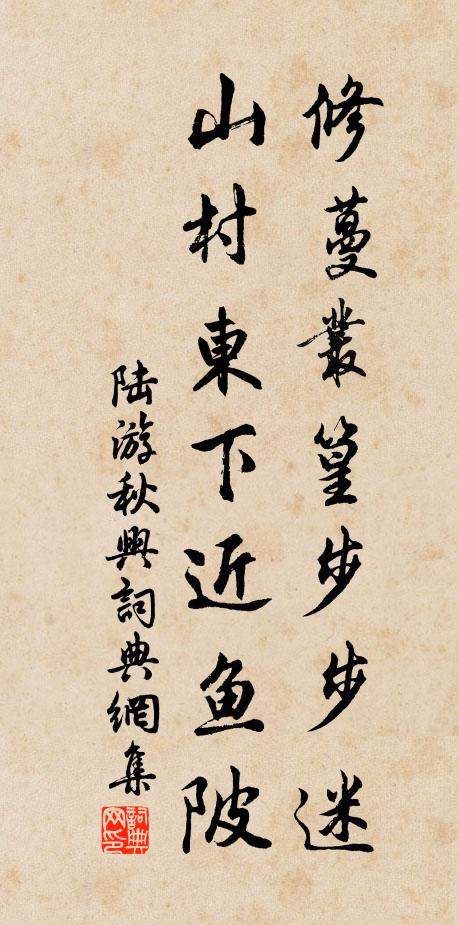 修蔓叢篁步步迷
山村東下近鱼陂
陆游秋興詞典網集
詞典网印